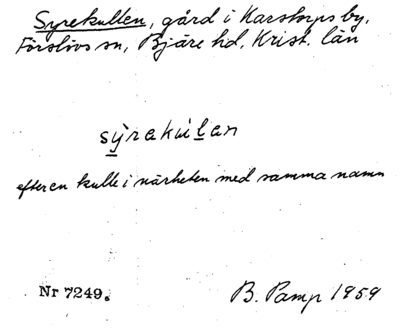 Syrekullen, gård i Karstorps by,
Förslövs sn, Bjäre hd, Krist. län
sýrakúlan
efter en kulle i närheten med samma namn
Nr 7249.
B. Pamp 1959